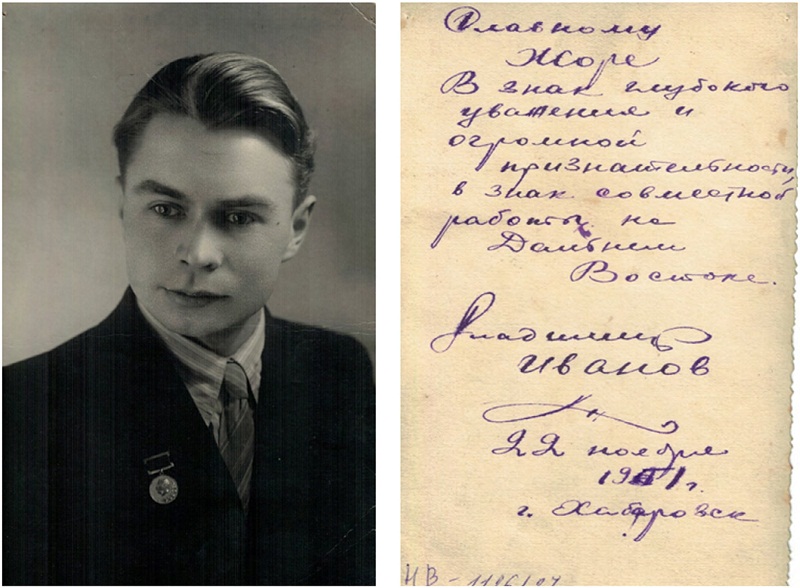 Славному
Жоре
В знак глубокого
уважения и
огромной
признательности,
в знак совместной
работы на
Дальнем
Востоке.
Владимир
Иванов
22 ноября
г. Хабаровск
НВ -